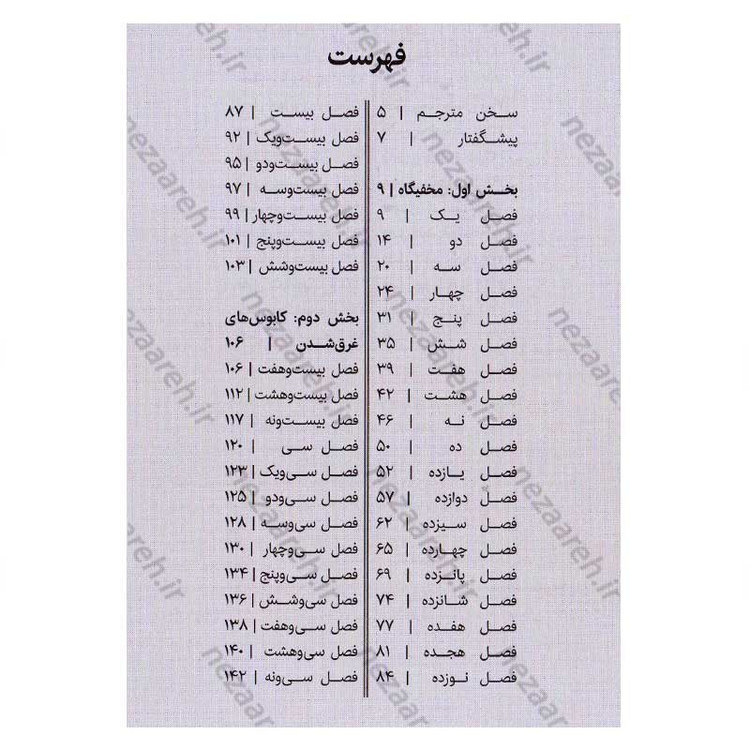 فهرست
سخن مترجم | ۵
پیشگفتار | ۷
بخش اول: مخفیگاه | ۹
فصل یک | ۹
فصل دو | ۱۴
فصل سه | ۲۰
فصل چهار | ۲۴
فصل پنج | ۳۱
فصل شش | ۳۵
فصل هفت | ۳۹
فصل هشت | ۴۲
فصل نه | ۴۶
فصل ده | ۵۰
فصل یازده | ۵۲
فصل دوازده | ۵۷
فصل سیزده | ۶۲
فصل چهارده | ۶۵
فصل پانزده | ۶۹
فصل شانزده | ۷۴
فصل هفده | ۷۷
فصل هجده | ۸۱
فصل نوزده | ۸۴
فصل بیست | ۸۷
فصل بیست‌ویک | ۹۲
فصل بیست‌ودو | ۹۵
فصل بیست‌وسه | ۹۷
فصل بیست‌وچهار | ۹۹
فصل بیست‌وپنج | ۱۰۱
فصل بیست‌وشش | ۱۰۳
بخش دوم: کابوس‌های
غرق‌شدن | ۱۰۶
فصل بیست‌وهفت | ۱۰۶
فصل بیست‌وهشت | ۱۱۲
فصل بیست‌ونه | ۱۱۷
فصل سی | ۱۲۰
فصل سی‌ویک | ۱۲۳
فصل سی‌ودو | ۱۲۵
فصل سی‌وسه | ۱۲۸
فصل سی‌وچهار | ۱۳۰
فصل سی‌وپنج | ۱۳۴
فصل سی‌وشش | ۱۳۶
فصل سی‌وهفت | ۱۳۸
فصل سی‌وهشت | ۱۴۰
فصل سی‌ونه | ۱۴۲
nezaareh.ir